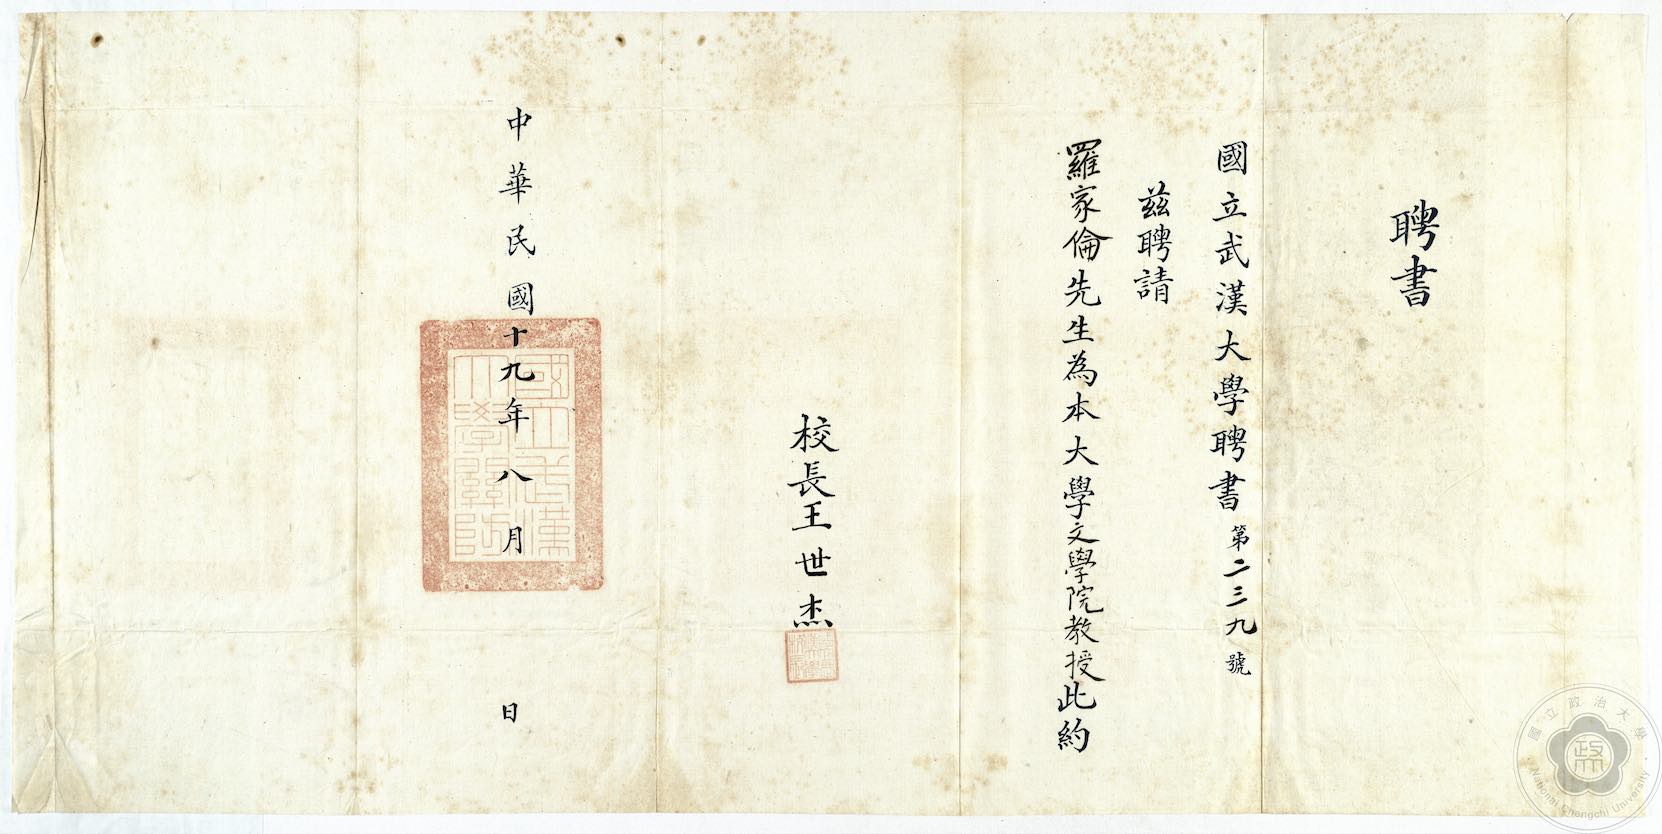 聘書
國立武漢大學聘書第二三九號
茲聘請
羅家倫先生為本大學文學院教授此約
校長王世杰
中華民國十九年八月 日
國立武漢大學關防
國立政治大學
National Chengchi University